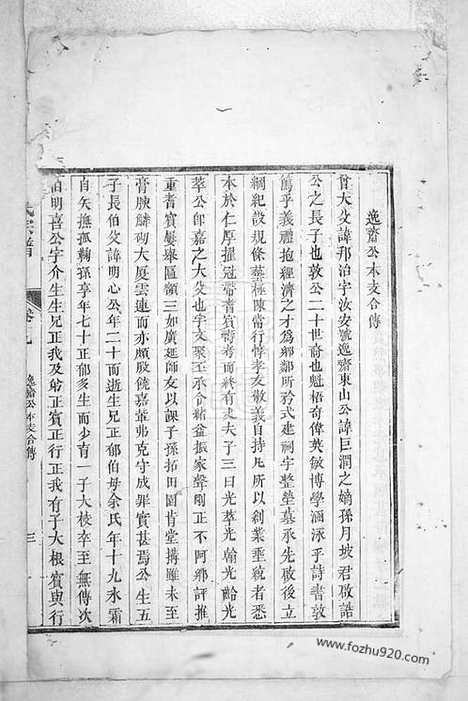 逸齋公本支合傳
曾大父諱邦治字汝安號逸齋東山公諱巨潤之嫡孫月坡君啟誥
公之長子也敦公二十世裔也魁梧奇偉英敏博學涵泳乎詩書敦
篤乎義禮抱經濟之才為鄉鄰所矜式建祠宇整塋墓承先啟後立
綱紀設規條蒸極陳常行悖孝友敬義自持凡所以創業垂統者悉
本於仁厚擢冠帶耆賓壽考而終有丈夫子三曰光萃光翰光齡光
萃公即嘉之大父也字文聚至承合緒益振家聲剛正不阿鄉評推
重耆賓屢舉匾額三如廣延師友以課子孫拓田園肯堂搆雖未至
膏腴麟砌大厦雲連而亦頗殷饒嘉輩弗克守成罪實甚焉公生五
子長伯父諱明心公年二十而逝生兄正郁伯母余氏年十九氷霜
自矢撫孤鞠孫享年七十正郁多生而少育一子大枝卒至無傳次
伯明喜公字介生生兄正我及弟正賓正行正我有子大根賓與行
氏宗譜
卷之九
逸齋公本支合傳
三
www.fozhu920.com